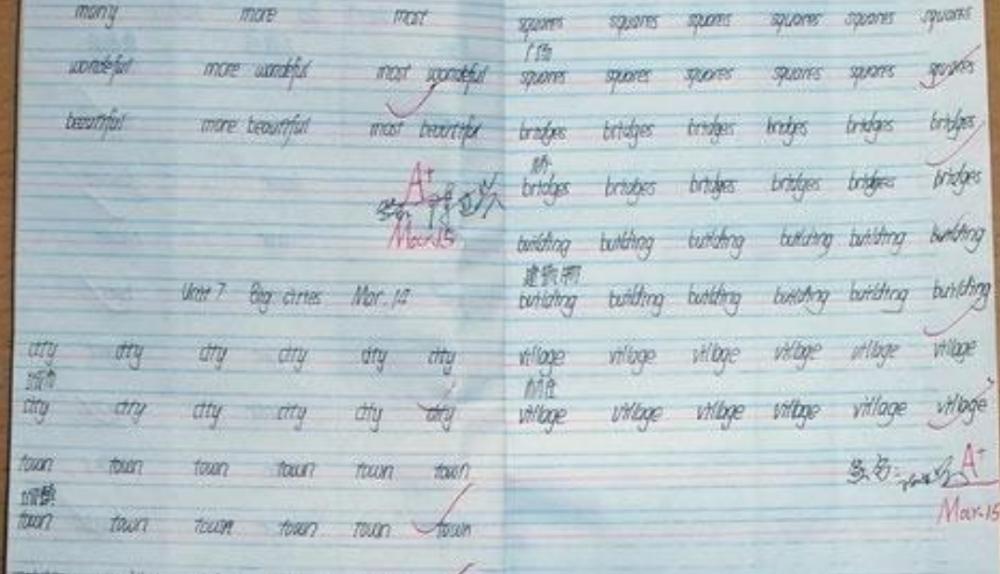 many more most
wondeful more wondeful most wondeful
beautiful more beautiful most beautiful
A+
Mar.15
Unit 7 Big cities Mar. 12
city city city city city city
城市
city city city city city city
town town town town town town
城镇
town town town town town town
squares squares squares squares squares squares
广场
squares squares squares squares squares squares
bridges bridges bridges bridges bridges bridges
桥
bridges bridges bridges bridges bridges bridges
building building building building building building
建筑物
building building building building building building
village village village village village village
村庄
village village village village village village
A+
Mar.15